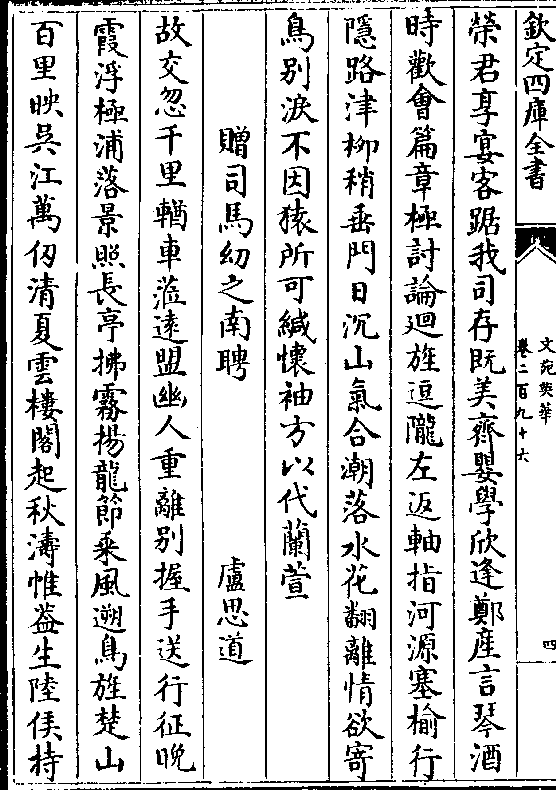 欽定四庫全書
文苑英華
卷二百九十六
四
榮君享宴客踞我司存既美齊嬰學欣逢鄭産言琴酒
時歡會篇章極討論迴旌逗隴左返軸指河源塞榆行
隱路津柳稍垂門日沉山氣合潮落水花翻離情欲寄
鳥别淚不因猿所可緘懷袖方以代蘭萱
贈司馬幼之南聘
盧思道
故交忽千里輶車蒞遠盟幽人重離别握手送行征晩
霞浮極浦落景照長亭拂霧揚龍節乘風遡鳥旌楚山
百里映吳江萬仭清夏雲樓閣起秋濤帷葢生陸侯持